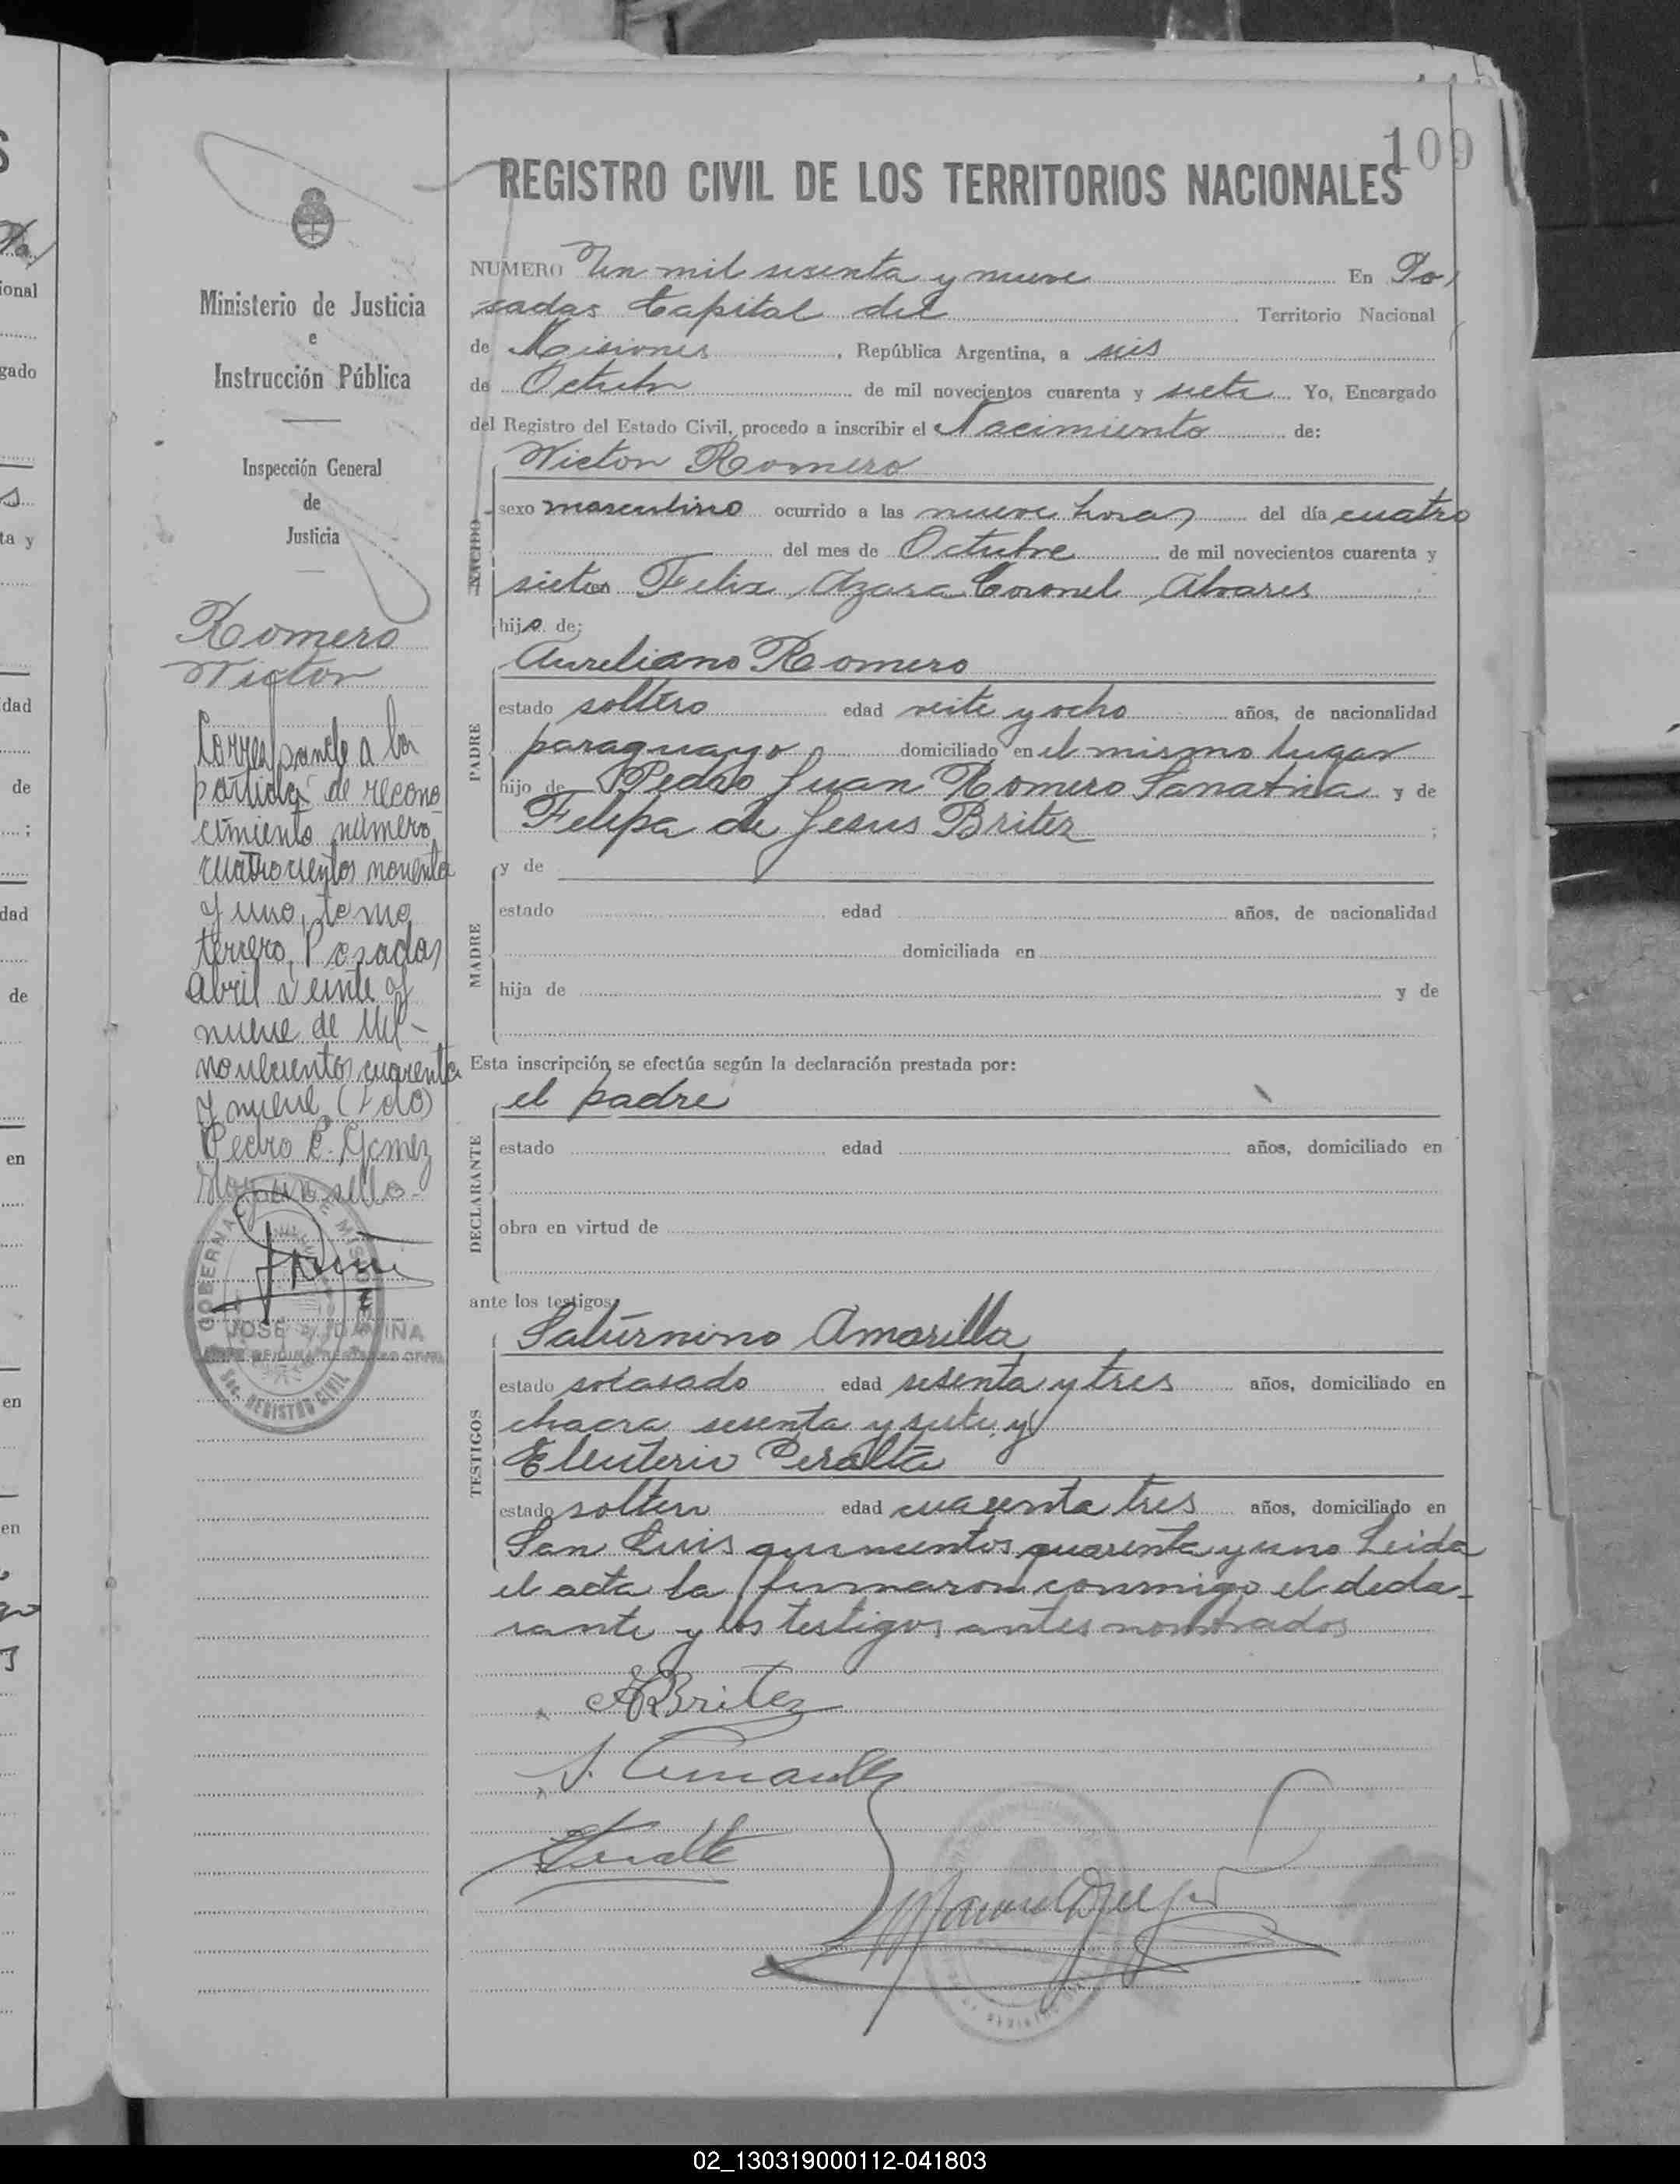 109
REGISTRO CIVIL DE LOS TERRITORIOS NACIONALES
Ministerio de Justicia
e
Instrucción Pública
Inspección General
de
Justicia
Romero
Victor
Corresponde a la
partida de recono
cimiento número
cuatrocientos noventa
y uno, tomo
tercero, Posadas
Abril veinte y
nueve de Mil
novecientos cuarenta
y nueve (Fdo)
Pedro E. Gomez
Hay un sello.
GOBERNACION DE MISIONES
JOSE
SEC. REGISTRO CIVIL
NUMERO Un mil sesenta y nueve En Po
sadas Capital del Territorio Nacional
de Misiones, República Argentina, a seis
de Octubre de mil novecientos cuarenta y siete Yo, Encargado
del Registro del Estado Civil, procedo a inscribir el Nacimiento de:
NACIDO
Victor Romero
sexo masculino ocurrido a las nueve horas del día cuatro
del mes de Octubre de mil novecientos cuarenta y
siete en Felix Azara Coronel Alvares
hijo de:
PADRE
Aureliano Romero
estado soltero edad veite y ocho años, de nacionalidad
paraguayo domiciliado en el mismo lugar
hijo de Pedro Juan Romero Sanatria y de
Felipa de Jesus Britez ;
MADRE
y de
estado edad años, de nacionalidad
domiciliada en
hija de y de
Esta inscripción se efectúa según la declaración prestada por:
DECLARANTE
el padre
estado edad años, domiciliado en
obra en virtud de
ante los testigos:
TESTIGOS
Saturnino Amarilla
estado casado edad sesenta y tres años, domiciliado en
chacra sesenta y siete y
Eleuterio Peralta
estado soltero edad cuarenta tres años, domiciliado en
San Luis quinientos cuarenta y uno Leida
el acta la firmaron conmigo el decla-
rante y los testigos antes nombrados
ARBritez
S. Amarilla
EPeralta
02_130319000112-041803